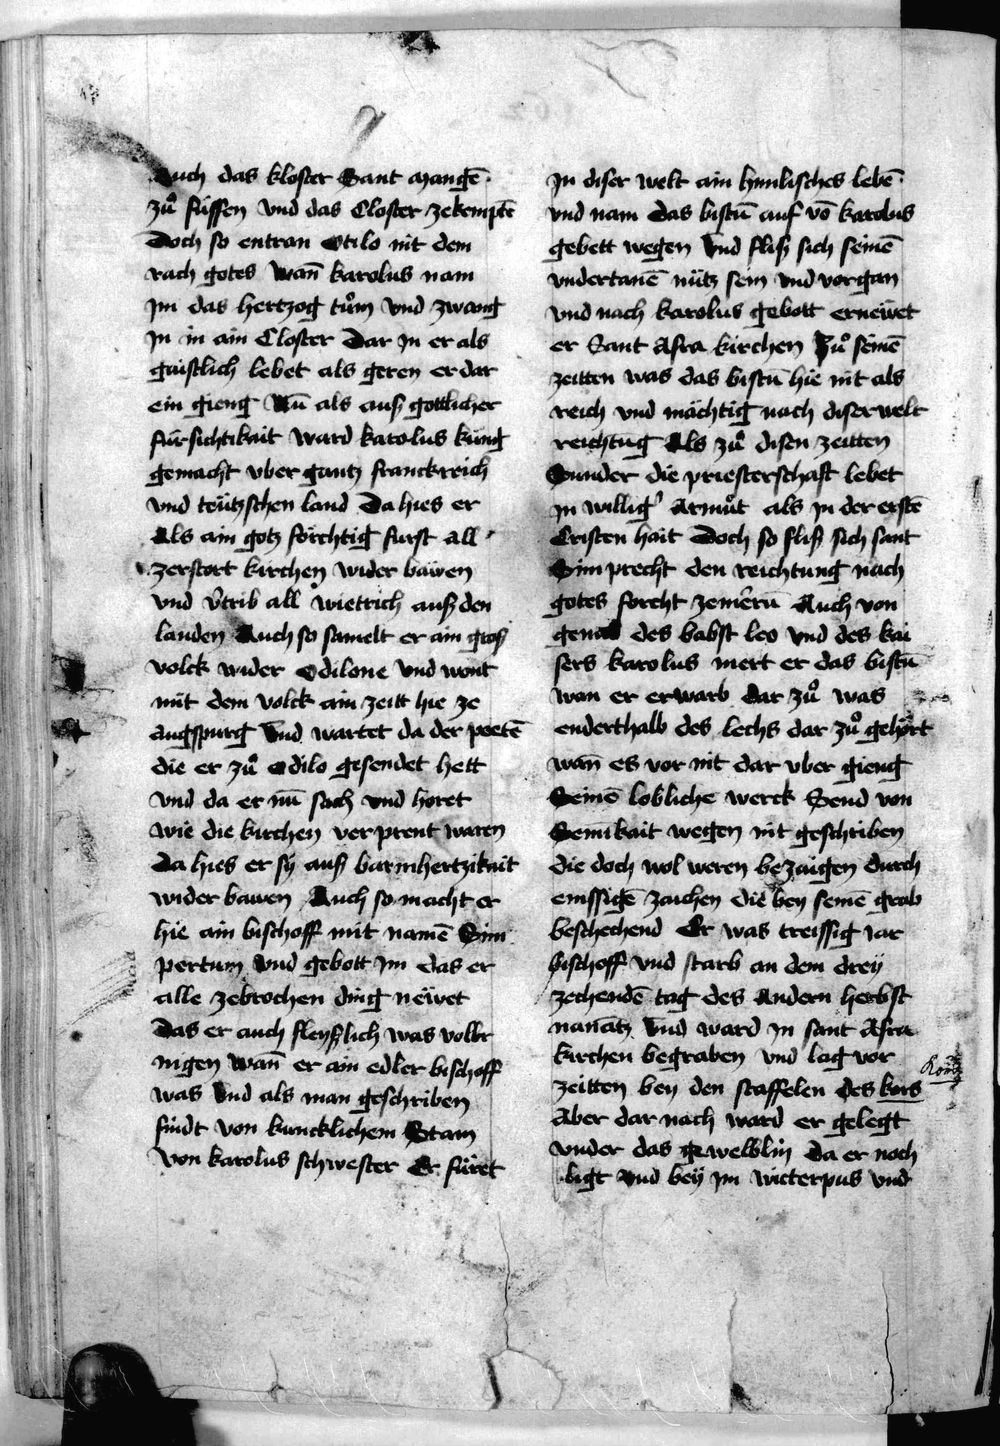 Auch das kloster Sant mangē
zuͦ fuͤssen vnd das Closter zekemptē
Doch so entran Otilo nit dem
rach gotes wan̄ karolus nam
jm das hertzog tuͦm vnd zwang
jn in ain Closter Dar jn er als
gaistlich lebet als geren er dar
ein gieng Nū als auß gottlicher
fürsichtikait ward karolus küng
gemacht vber gantz franckreich
vnd teützschen land Da hies er
Als ain gotz förchtig furst all
zerstört kirchen wider bäwen
vnd v̓trib all wietrich auß den
landen Auch so samelt er ain groß
volck wider Odilone vnd wont
mit dem volck ain zeitt hie ze
augspurg vnd wartet da der poetē
die er zuͦ Odilo gesendet hett
vnd da er nū sach vnd horet
wie die kirchen ver prent waren
da hies er sÿ auß barmhertzikait
wider bawen Auch so macht er
hie ain bischoff mit namē Sim
pertum vnd gebott jm das er
alle zebrochen ding neẅet
Das er auch fleyßlich was volbr
ingen wan̄ er ain edler bischoff
was vnd als man geschriben
findt von kuncklichem Stam
von karolus schwester Er fuͤret
jn diser welt ain himlisches lebē
vnd nam das bistū auf vō karolus
gebett wegen vnd fliß sich seinē
vndertanē nütz sein vnd vorgan
vnd nach karolus gebott erneẅet
er Sant Afra kirchen Zuͦ seinē
zeitten was das bistū hie nit als
reich vnd mächtig nach diser welt
reichtug Als zuͦ disen zeitten
Sunder die priesterschaft lebet
jn willig' Armuͦt als jn der erstē
Cristen hait Doch so fliß sich sant
Simprecht den reichtung nach
gotes forcht zemerū Auch von
genad des babst leo vnd des kai
sers karolus mert er das bistū
wan er erwarb dar zuͦ was
enderthalb des lechs dar zuͦ gehört
wan̄ es vor nit dar vber gieng
Seinē lobliche werck Send von
Semikait wegen nit geschriben
die doch wol weren bezaügen durch
emssigē zaichen die bey seinē grab
beschechend Er was treissig iar
bischoff vnd starb an dem dreÿ
zechendē tag des Andern herbst
nanātz vnd ward jn sant Afra
kirchen begraben vnd lag vor
zeitten bey den staffelen des kors
Aber dar nach ward er gelegt
vnder das gewelblin da er noch
ligt vnd beÿ jm wicterpus vnd